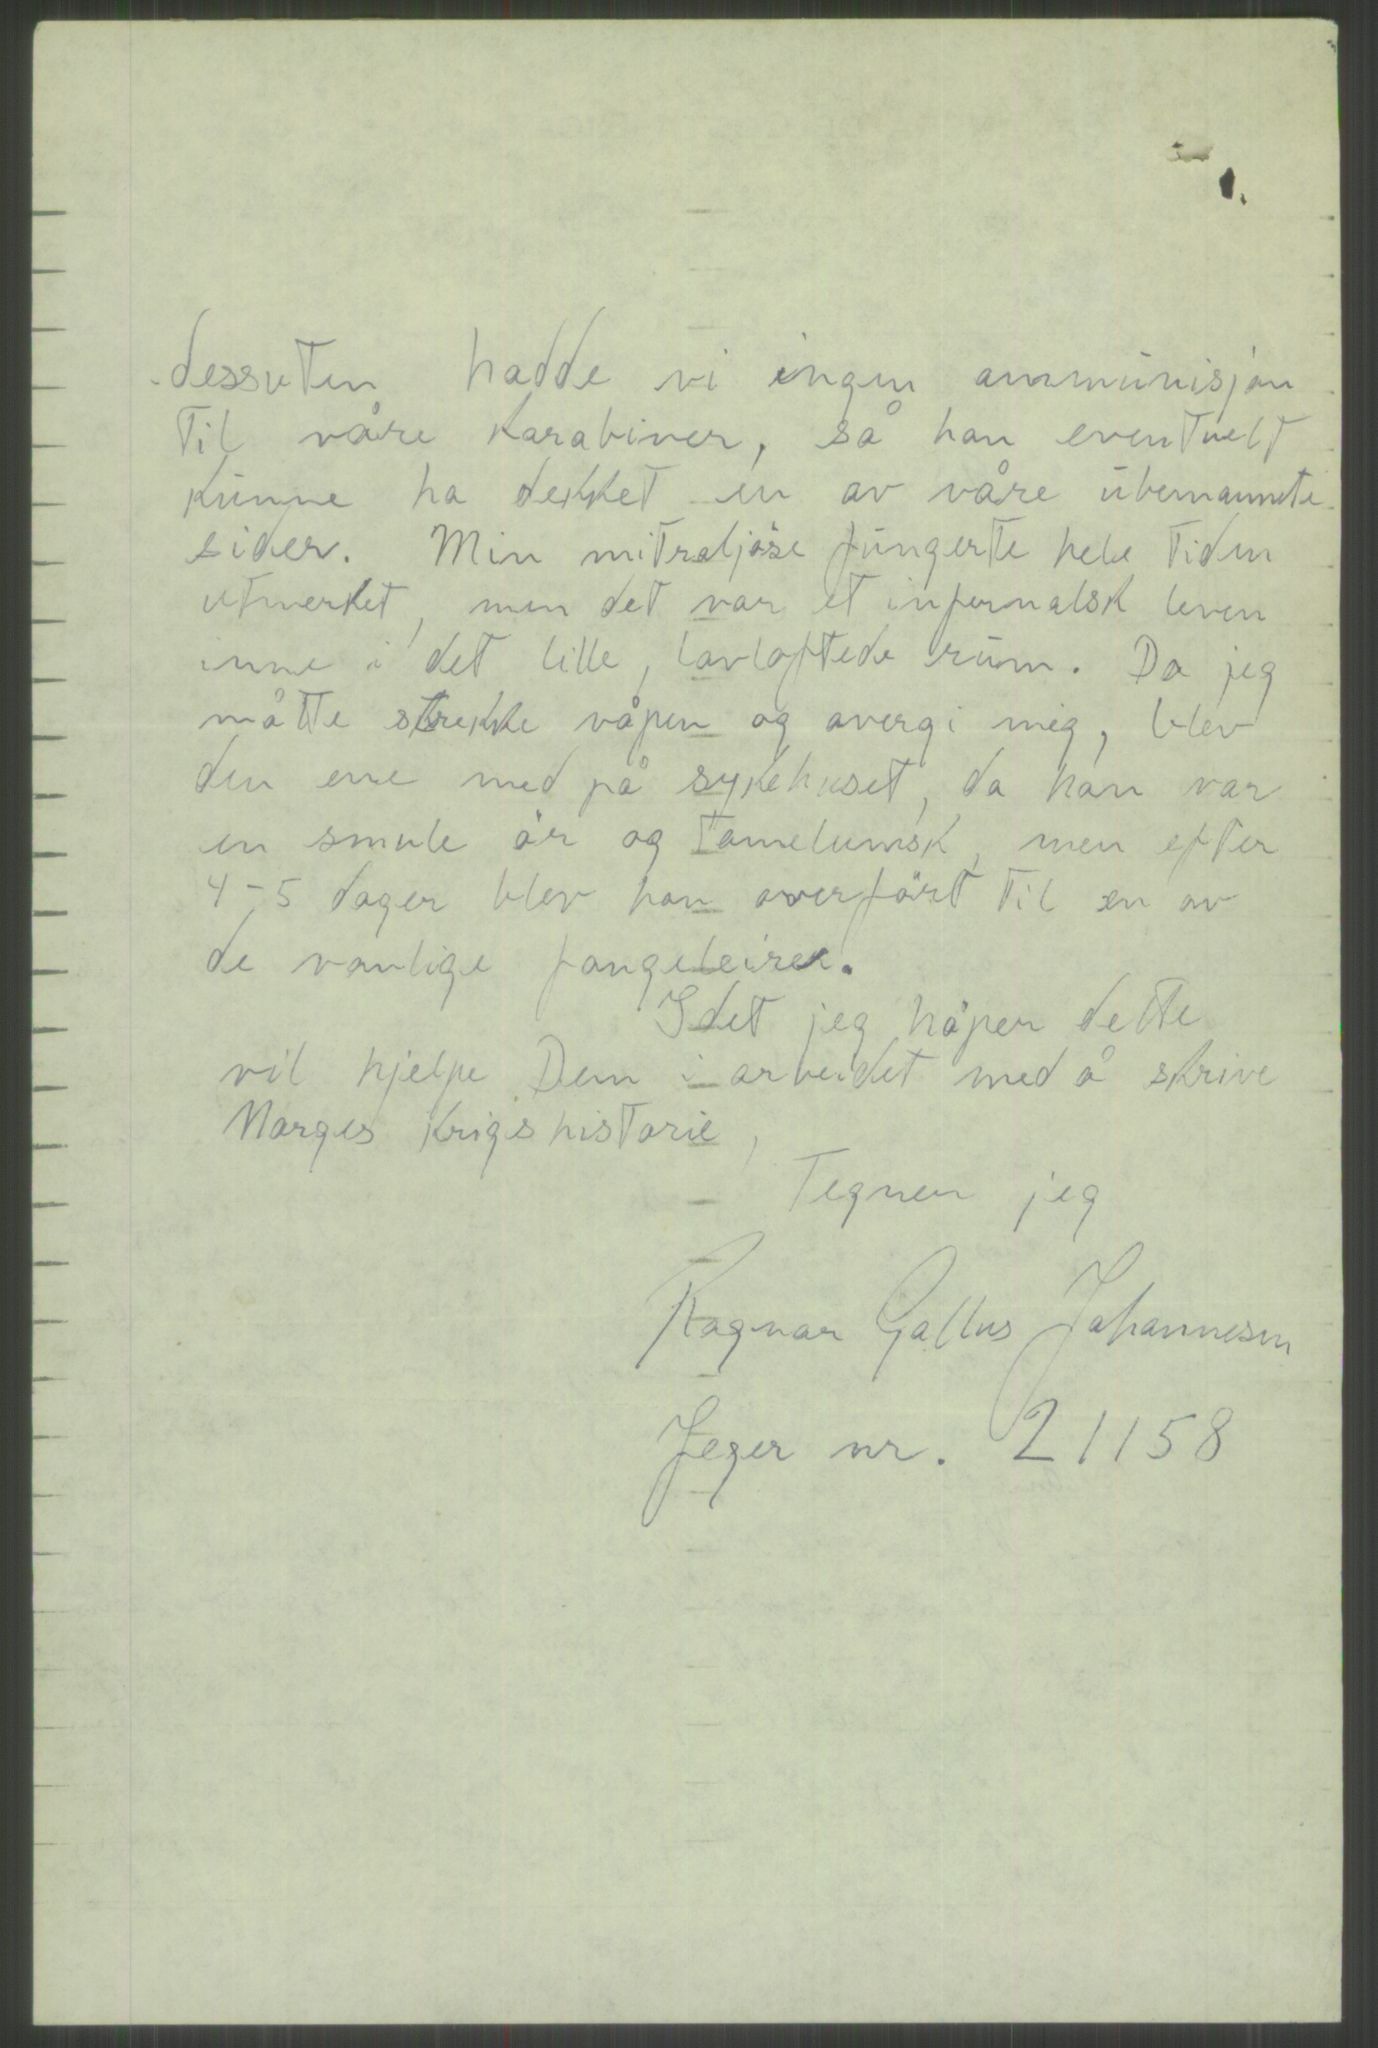 dessuten hadde vi ingen ammunisjon
til våre karabiner, så han eventuelt
kunne ha dekket en av våre ubemannete
sider. Min mitraljøse fungerte hele tiden
utmerket, men det var et infernalsk leven
inne i det lille, lavloftede rum. Da jeg
måtte strekke våpen og overgi mig, blev
den ene med på sykehuset, da han var
en smule ör og tomelumsk, men efter
4-5 dager blev han overfört til en av
de vanlige fangeleirer.
Idet jeg håper dette
vil hjelpe Dem i arbeidet med å skrive
Norges Krigshistorie,
Tegner jeg
Ragnar Gallus Johannesen
Jeger nr. 21158